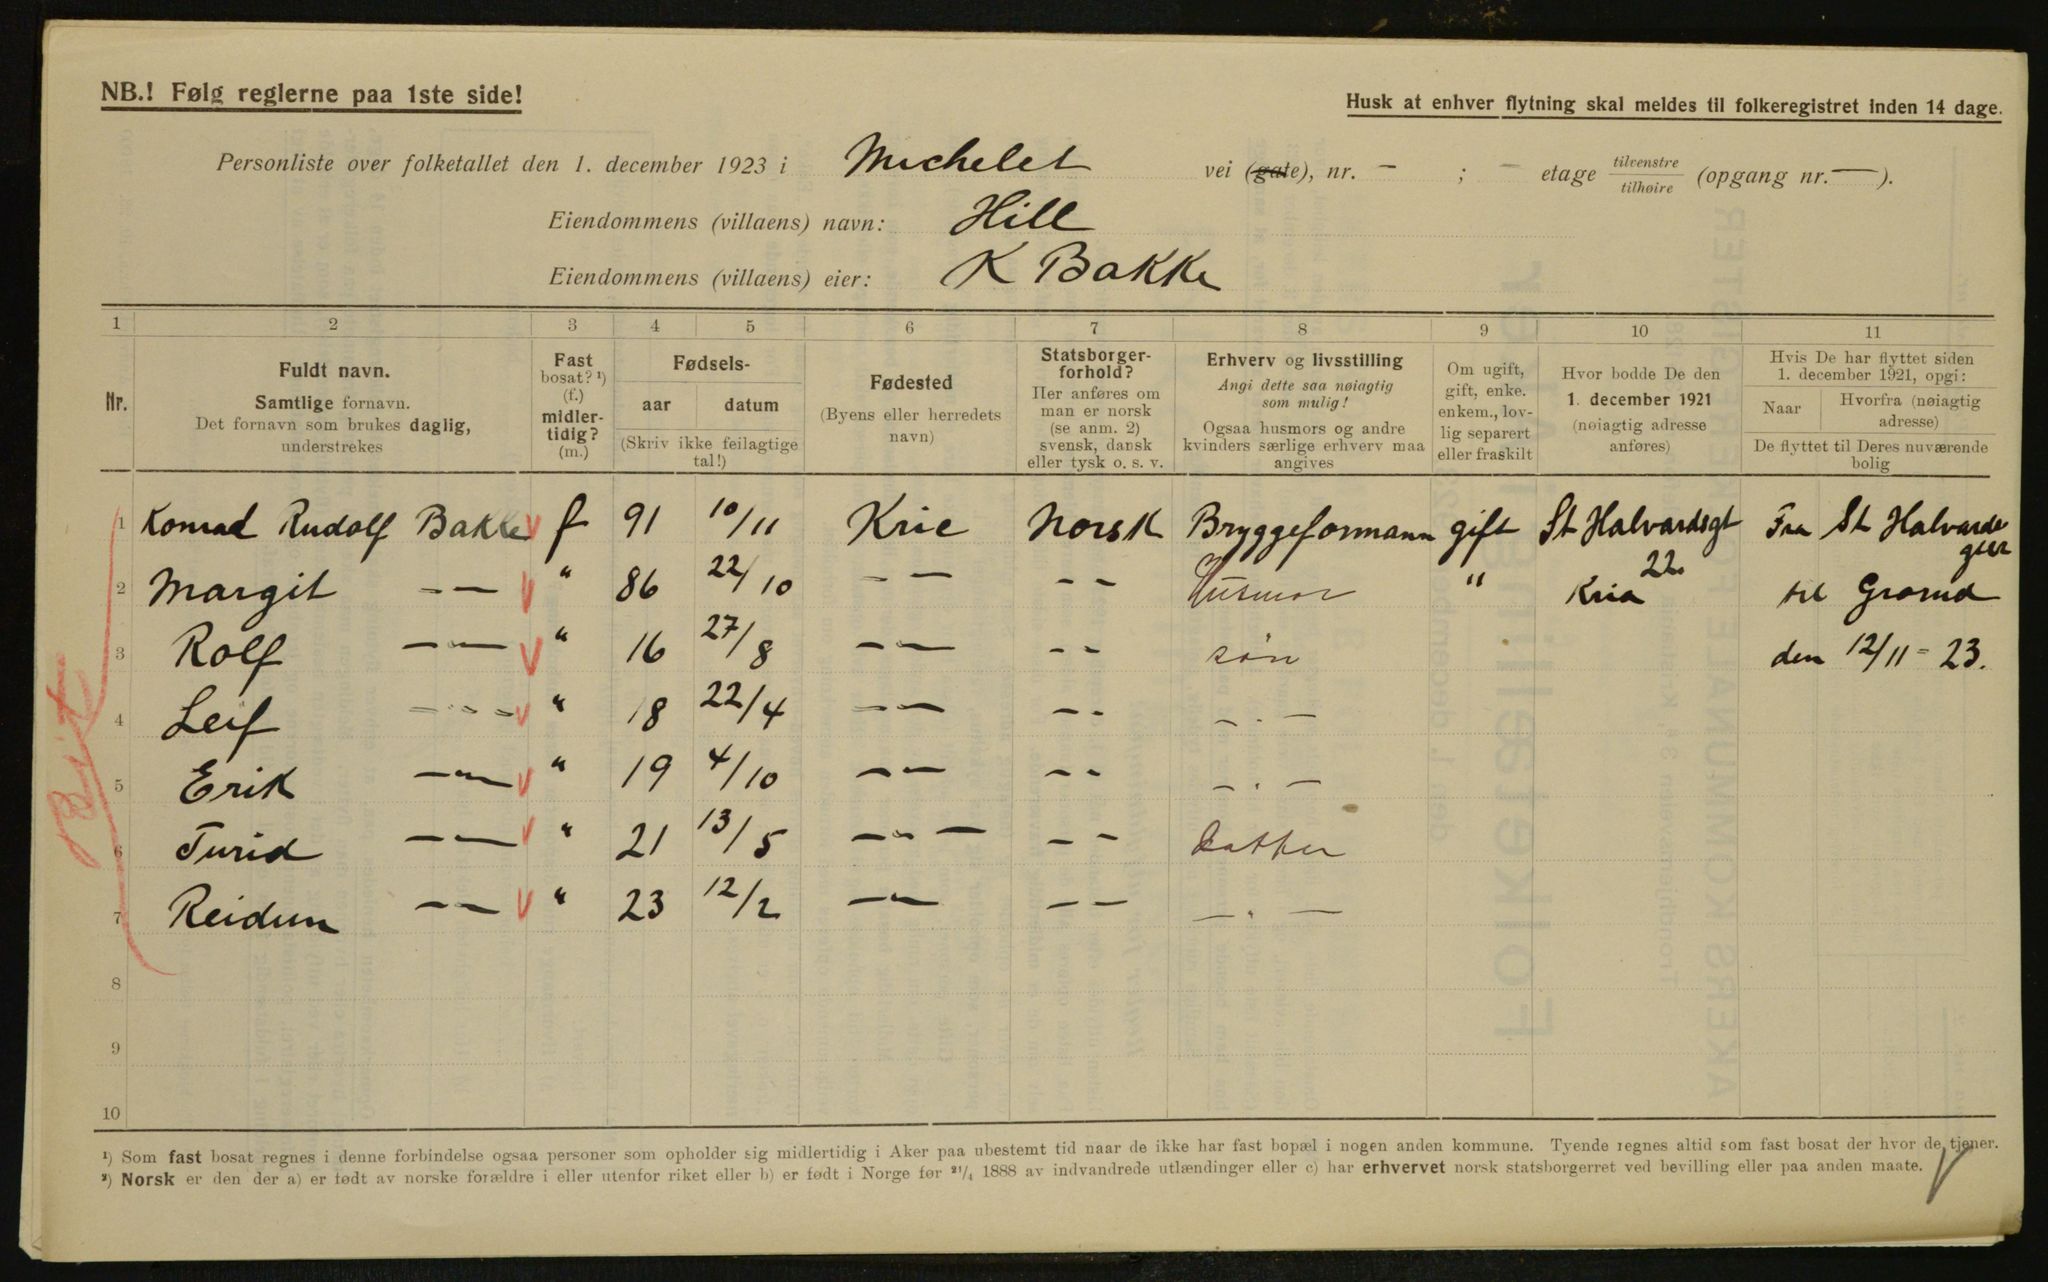 NB.! Følg reglerne paa 1ste side!
Husk at enhver flytning skal meldes til folkeregistret inden 14 dage.
Personliste over folketallet den 1. december 1923 i Michelet vei (gate), nr. — ; — etage tilvenstre/tilhøire (opgang nr. —).
Eiendommens (villaens) navn: Hill
Eiendommens (villaens) eier: K Bakke
1 2 3 4 5 6 7 8 9 10 11
Nr.
Fuldt navn.
Samtlige fornavn.
Det fornavn som brukes daglig,
understrekes
Fast
bosat? ¹)
(f.)
midler-
tidig?
(m.)
Fødsels-
aar datum
(Skriv ikke feilagtige
tal!)
Fødested
(Byens eller herredets
navn)
Statsborger-
forhold?
Her anføres om
man er norsk
(se anm. 2)
svensk, dansk
eller tysk o. s. v.
Erhverv og livsstilling
Angi dette saa nøiagtig
som mulig!
Ogsaa husmors og andre
kvinders særlige erhverv maa
angives
Om ugift,
gift, enke.
enkem., lov-
lig separert
eller fraskilt
Hvor bodde De den
1. december 1921
(nøiagtig adresse
anføres)
Hvis De har flyttet siden
1. december 1921, opgi:
Naar Hvorfra (nøiagtig
adresse)
De flyttet til Deres nuværende
bolig
1 Konrad Rudolf Bakke f 91 10/11 Kria Norsk Bryggeformann gift St Halvardsgt 22 Fra St Halvards gt 22
2 Margit —"— " 86 22/10 —"— — " — Husmor " Kria til Grorud
3 Rolf —"— " 16 27/8 —"— — " — søn den 12/11 = 23.
4 Leif —"— " 18 22/4 —"— — " — — . —
5 Erik —"— " 19 4/10 —"— — " — — . —
6 Turid —"— " 21 13/5 —"— — " — datter
7 Reidun —"— " 23 12/2 —"— — " — — . —
8
9
10
¹) Som fast bosat regnes i denne forbindelse ogsaa personer som opholder sig midlertidig i Aker paa ubestemt tid naar de ikke har fast bopæl i nogen anden kommune. Tyende regnes altid som fast bosat der hvor de tjener.
²) Norsk er den der a) er født av norske forældre i eller utenfor riket eller b) er født i Norge før ²¹/₄ 1888 av indvandrede utlændinger eller c) har erhvervet norsk statsborgerret ved bevilling eller paa anden maate.